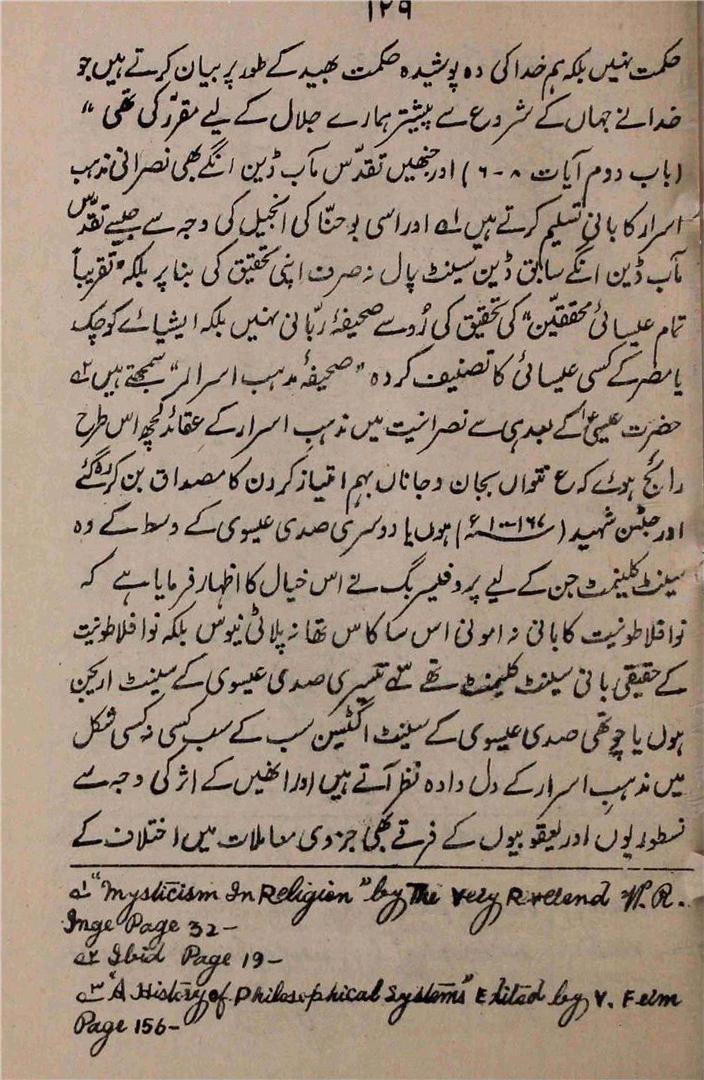 ۱۲۹
حکمت نہیں بلکہ ہم خدا کی وہ پوشیدہ حکمت بھید کے طور پر بیان کرتے ہیں جو
خدا نے جہاں کے شروع سے پیشتر ہمارے جلال کے لیے مقرّر کی تھی “
(باب دوم آیات ۸-۶) اور جنھیں تقدّس مآب ڈین انگے بھی نصرانی مذہب
اسرار کا بانی تسلیم کرتے ہیں ۱ے اور اسی یوحنّا کی انجیل کی وجہ سے جسے تقدّس
مآب ڈین انگے سابق ڈین سینٹ پال نہ صرف اپنی تحقیق کی بنا پر بلکہ ”تقریباً
تمام عیسائی محققین“ کی تحقیق کی رُو سے صحیفۂ ربّانی نہیں بلکہ ایشیائے کوچک
یا مصر کے کسی عیسائی کا تصنیف کردہ ”صحیفۂ مذہب اسرار“ سمجھتے ہیں ۲ے
حضرت عیسیٰؑ کے بعد ہی سے نصرانیت میں مذہبِ اسرار کے عقائد کچھ اس طرح
رائج ہوئے کہ ع نتواں بجان و جاناں بہم امتیاز کردن کا مصداق بن کر رہ گئے
اور جسٹن شہید (۱۶۷-۱۰۰ء) ہوں یا دوسری صدی عیسوی کے وسط کے وہ
سینٹ کلیمنٹ جن کے لیے پروفیسر برگ نے اس خیال کا اظہار فرمایا ہے کہ
نوافلاطونیت کا بانی نہ امونی اس ساکاس تھا نہ پلاٹی نیوس بلکہ نوافلاطونیت
کے حقیقی بانی سینٹ کلیمنٹ تھے ۳ے تیسری صدی عیسوی کے سینٹ اریجن
ہوں یا چوتھی صدی عیسوی کے سینٹ اگسٹین سب کے سب کسی نہ کسی شکل
میں مذہبِ اسرار کے دل دادہ نظر آتے ہیں اور انھیں کے اثر کی وجہ سے
نسطوریوں اور یعقوبیوں کے فرقے بھی جزوی معاملات میں اختلاف کے
۱ے "Mysticism In Religion" by The Very Reverend W. R.
Inge Page 32-
۲ے Ibid Page 19-
۳ے "A History of Philosophical Systems" Edited by V. Ferm
Page 156-